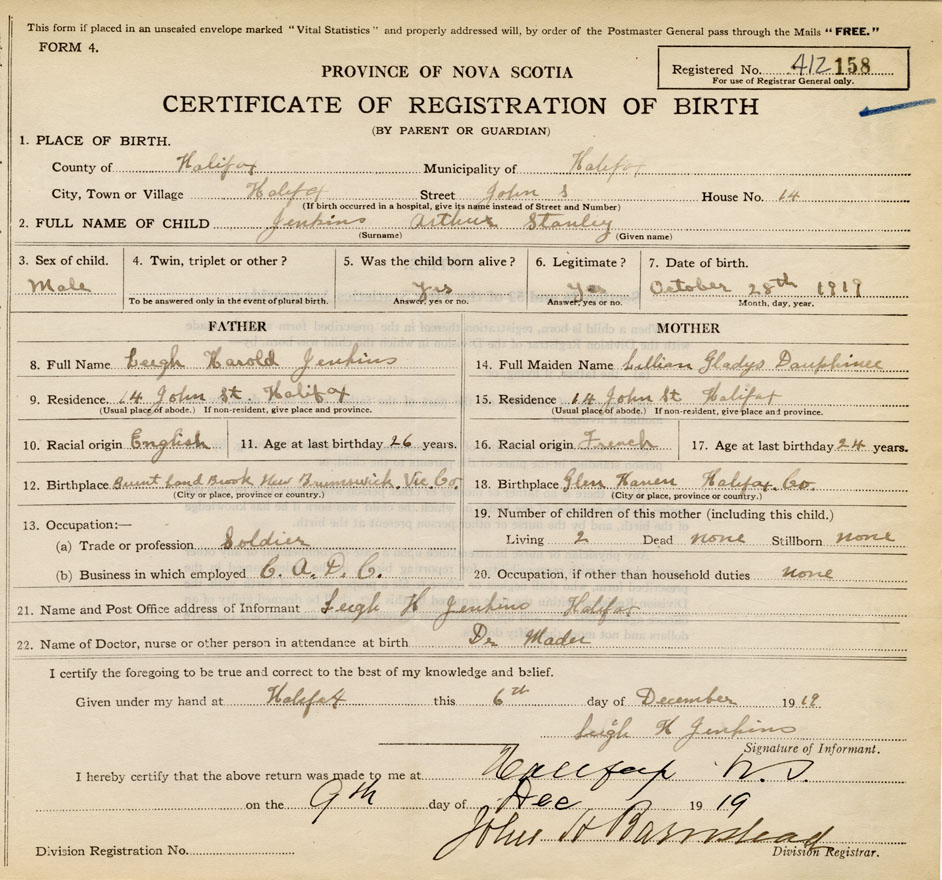 This form if placed in an unsealed envelope marked "Vital Statistics" and properly addressed will, by order of the Postmaster General pass through the Mails "FREE."
FORM 4.
Registered No. 412 158
For use of Registrar General only.
PROVINCE OF NOVA SCOTIA
CERTIFICATE OF REGISTRATION OF BIRTH
(BY PARENT OR GUARDIAN)
1. PLACE OF BIRTH.
County of Halifax Municipality of Halifax
City, Town or Village Halifax Street John S House No. 14
(If birth occurred in a hospital, give its name instead of Street and Number)
2. FULL NAME OF CHILD Jenkins Arthur Stanley
(Surname) (Given name)
3. Sex of child. 4. Twin, triplet or other? 5. Was the child born alive? 6. Legitimate? 7. Date of birth.
Male Yes Yes October 28th 1919
To be answered only in the event of plural birth. Answer, yes or no. Answer, yes or no. Month, day, year.
FATHER MOTHER
8. Full Name Leigh Harold Jenkins 14. Full Maiden Name Lillian Gladys Dauphinee
9. Residence 14 John St. Halifax 15. Residence 14 John St Halifax
(Usual place of abode.) If non-resident, give place and province. (Usual place of abode.) If non-resident, give place and province.
10. Racial origin English 11. Age at last birthday 26 years. 16. Racial origin French 17. Age at last birthday 24 years.
12. Birthplace Burnt Land Brook New Brunswick Vic. Co. 18. Birthplace Glen Haven Halifax Co.
(City or place, province or country.) (City or place, province or country.)
13. Occupation:— 19. Number of children of this mother (including this child.)
(a) Trade or profession Soldier Living 2 Dead none Stillborn none
(b) Business in which employed C. A. D. C. 20. Occupation, if other than household duties none
21. Name and Post Office address of Informant Leigh H Jenkins Halifax
22. Name of Doctor, nurse or other person in attendance at birth Dr Mader
I certify the foregoing to be true and correct to the best of my knowledge and belief.
Given under my hand at Halifax this 6th day of December 1919
Leigh H Jenkins
Signature of Informant.
I hereby certify that the above return was made to me at Halifax N.S.
on the 9th day of Dec 1919
John H Barnstead
Division Registration No. Division Registrar.